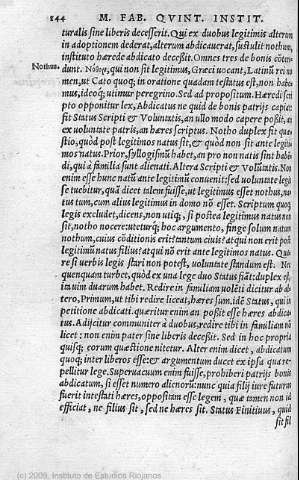 844 M. FAB. QVINT. INSTIT.
turalis sine liberis decesserit. Qui ex duobus legitimis alterum
in adoptionem dederat, alterum abdicauerat, sustulit nothum,
instituto hærede abdicato decessit. Omnes tres de bonis cōten-
Nothus.
dunt. Νόθον, qui non sit legitimus, Græci vocant, Latinū rei no
men, vt Cato quoq; in oratione quadam testatus est, non habe-
mus, ideoq; vtimur peregrino. Sed ad propositum. Hæredi scri
pto opponitur lex, Abdicatus ne quid de bonis patris capiat:
fit Status Scripti & Voluntatis, an vllo modo capere possit, an
ex voluntate patris, an hæres scriptus. Notho duplex fit quæ-
stio, quòd post legitimos natus sit, & quòd non sit ante legiti-
mos natus. Prior, syllogismū habet, an pro non natis sint habē
di, qui à familia sunt alienati. Altera Scripti & Volūtatis. Non
enim esse hunc natū ante legitimū conuenit: sed voluntate legis
se tuebitur, quā dicet talem fuisse, vt legitimus esset nothus, na-
tus tum, cum alius legitimus in domo nō esset. Scriptum quoq;
legis excludet, dicens, non vtiq; si postea legitimus natus non
sit, notho nocere: vteturq; hoc argumento, finge solum natum
nothum, cuius cōditionis erit? tantum ciuis? atqui non erit post
legitimū natus. filius? atqui nō erit ante legitimos natus. Qua-
re si verbis legis stari non potest, voluntate standum est. Nec
quenquam turbet, quòd ex vna lege duo Status fiāt: duplex est,
ita vim duarum habet. Redire in familiam volēti dicitur ab al-
tero, Primum, vt tibi redire liceat, hæres sum. idē Status, qui in
petitione abdicati. quæritur enim an possit esse hæres abdica-
tus. Adijcitur communiter à duobus, redire tibi in familiam nō
licet: non enim pater sine liberis decessit. Sed in hoc propria
quisq; eorum quæstione nitetur. Alter enim dicet, abdicatum
quoq; inter liberos esse: & argumentum ducet ex ipsa qua re-
pellitur lege. Superuacuum enim fuisse, prohiberi patris bonis
abdicatum, si esset numero alienorū: nunc quia filij iure futurus
fuerit intestati hæres, oppositam esse legem, quæ tamen non id
efficiat, ne filius sit, sed ne hæres sit. Status Finitiuus, quid
sit fil
(c) 2009, Instituto de Estudios Riojanos